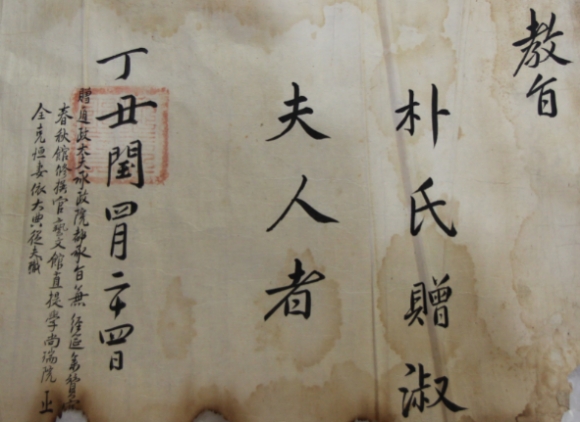 教旨
朴氏贈淑
夫人者
丁丑閏四月二十四日
贈通政大夫承政院都承旨兼 經筵參贊官
春秋館修撰官藝文館直提學尚瑞院正
全克恒妻依大典從夫職